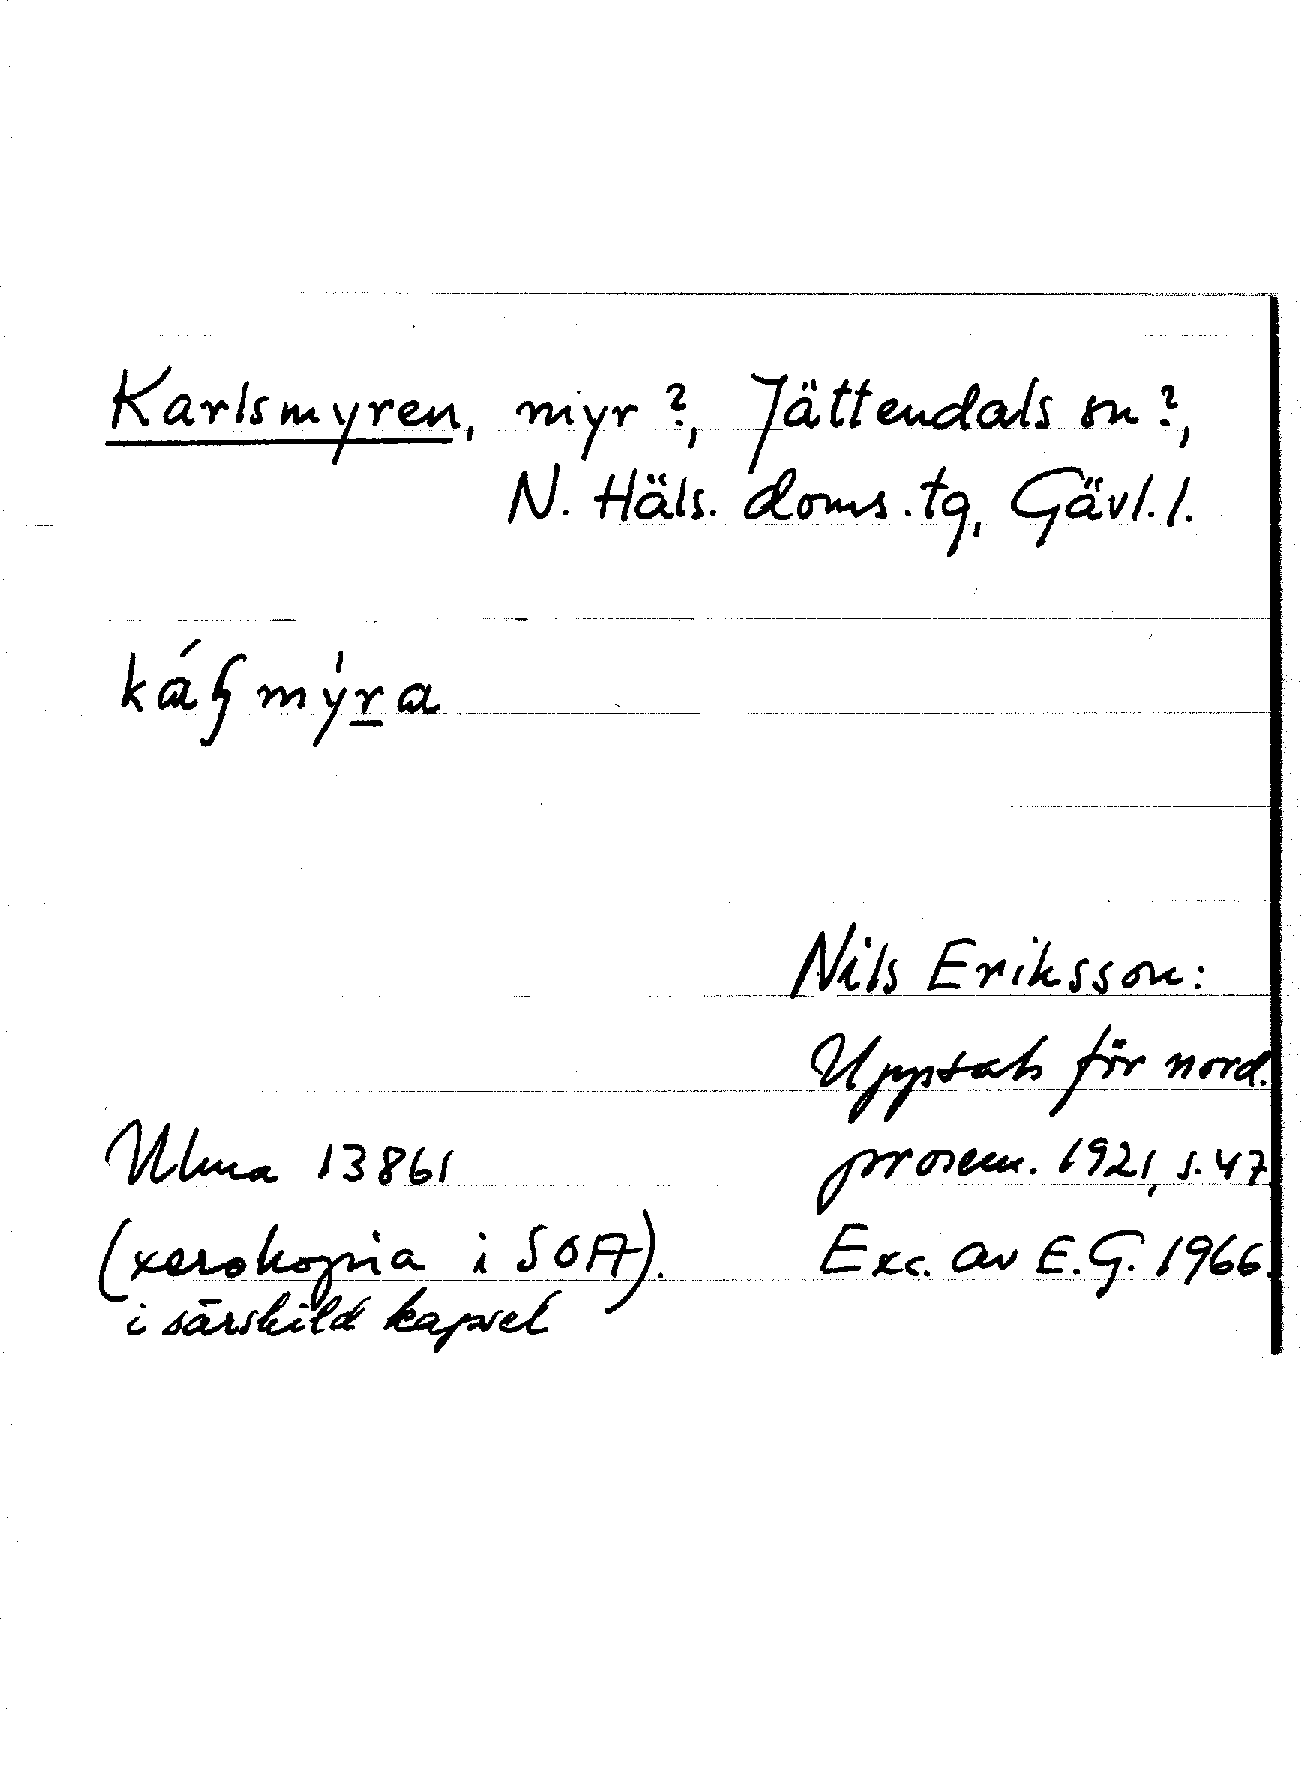 Karlsmyren, myr ?, Jättendals sn ?,
N. Häls. doms. tg, Gävl. l.
Nils Eriksson:
Uppsats för nord.
prosem. 1921, s. 47
Exc. av E.G. 1966.
Ulma 13861
(xerokopia i SOA).
i särskild kapsel